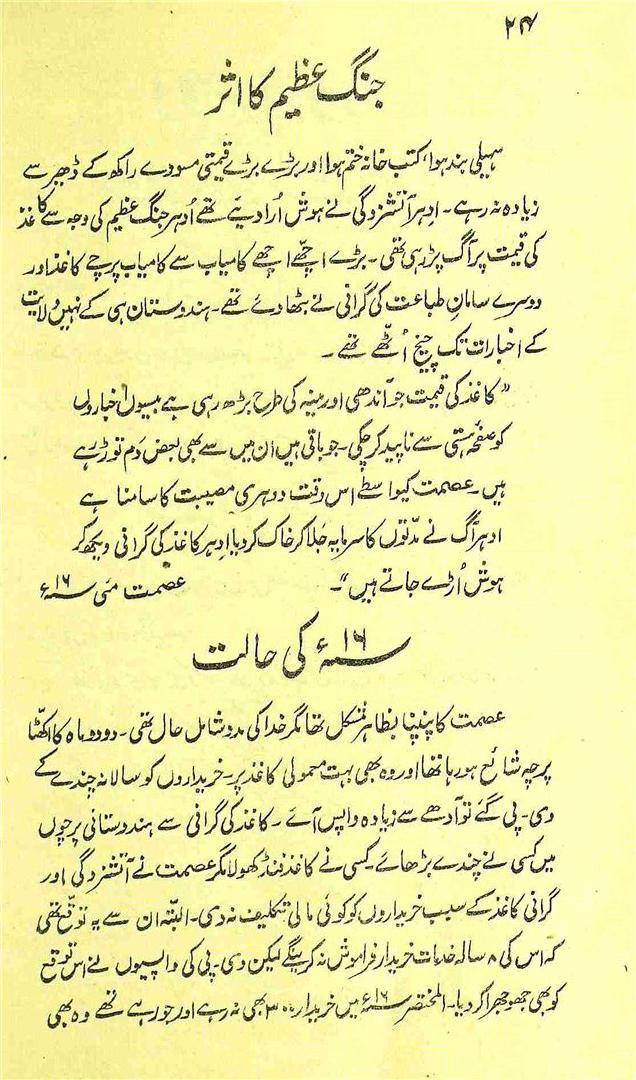 ۲۴
جنگ عظیم کا اثر
سہیلی بند ہوا، کتب خانہ ختم ہوا اور بڑے بڑے قیمتی مسودے راکھ کے ڈھیر سے
زیادہ نہ رہے۔ ادہر آتشزدگی نے ہوش اُرا دیئے تھے اُدہر جنگ عظیم کی وجہ سے کاغذ
کی قیمت پر آگ پڑ رہی تھی۔ بڑے اچھے اچھے کامیاب سے کامیاب پرچے کاغذ اور
دوسرے سامان طباعت کی گرانی نے بٹھا دئے تھے۔ ہندوستان ہی کے نہیں ولایت
کے اخبارات تک چیخ اُٹھے تھے۔
"کاغذ کی قیمت جو آندھی اور مینہ کی طرح بڑھ رہی ہے بیسیوں اخباروں
کو صفحہ ہستی سے ناپید کر چکی۔ جو باقی ہیں ان میں سے بھی بعض دَم توڑ رہے
ہیں۔ عصمت کیواسطے اس وقت دوہری مصیبت کا سامنا ہے
ادہر آگ نے مدّتوں کا سرمایہ جَلا کر خاک کر دیا ادہر کاغذ کی گرانی دیکھ کر
ہوش اُڑے جاتے ہیں"۔ عصمت مئی ۱۶ء
۱۶ء کی حالت
عصمت کا پنپنا بظاہر مشکل تھا مگر خدا کی مدد شامل حال تھی۔ دو دو ماہ کا اکٹھا
پرچہ شائع ہو رہا تھا اور وہ بھی بہت معمولی کاغذ پر۔ خریداروں کو سالانہ چندے کے
وی۔ پی گئے تو آدھے سے زیادہ واپس آئے۔ کاغذ کی گرانی سے ہندوستانی پرچوں
میں کسی نے چندے بڑھائے۔ کسی نے کاغذ فنڈ کھولا مگر عصمت نے آتشزدگی اور
گرانی کاغذ کے سبب خریداروں کو کوئی مالی تکلیف نہ دی۔ البتّہ ان سے یہ توقع تھی
کہ اس کی ۸ سالہ خدمات خریدار فراموش نہ کرینگے لیکن وی۔ پی کی واپسیوں نے اس توقع
کو بھی جھوجھرا کر دیا۔ المختصر ۱۶ء میں خریدار ۳۰۰ بھی نہ رہے اور جو رہے تھے وہ بھی